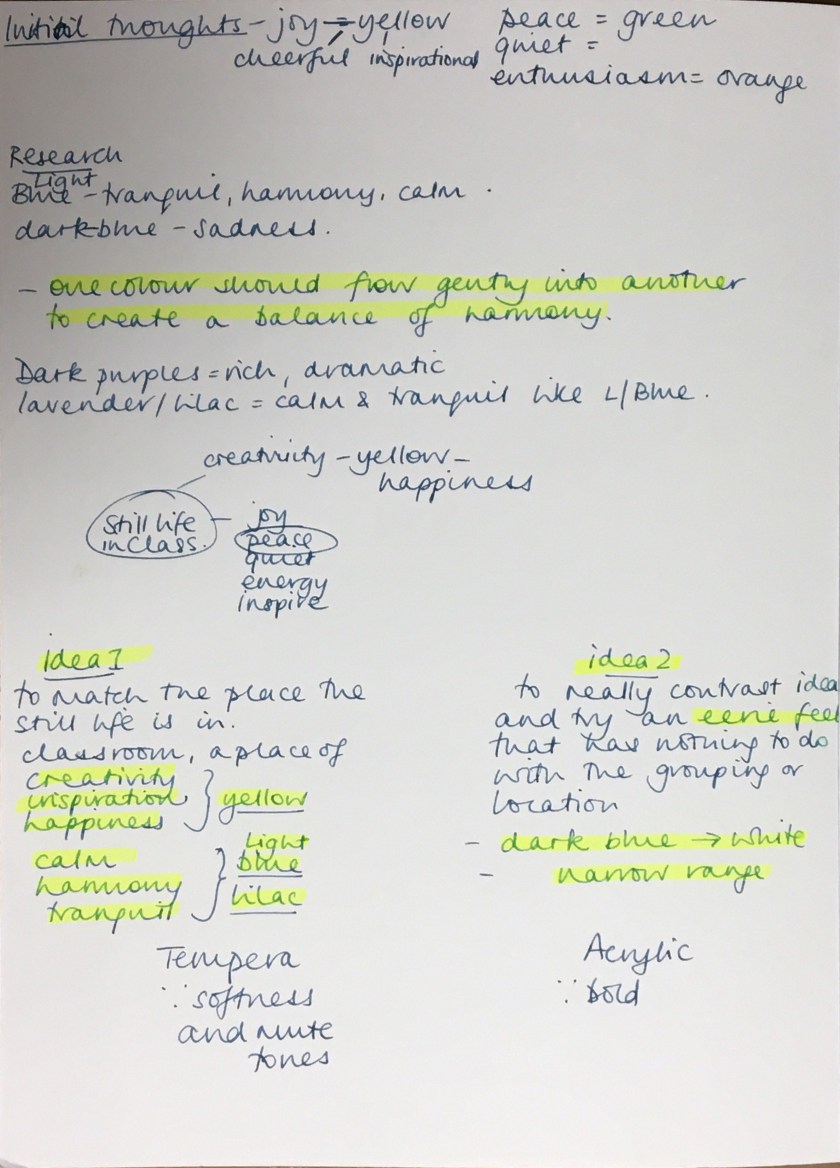 Initial thoughts - joy = yellow
cheerful inspirational
peace = green
quiet =
enthusiasm = orange
Research
Light
Blue - tranquil, harmony, calm.
dark blue - sadness.
- one colour should flow gently into another
to create a balance of harmony.
Dark purples = rich, dramatic
lavender/lilac = calm & tranquil like L/Blue.
creativity - yellow -
happiness
Still life
in class.
- joy
peace
quiet
energy
inspire
idea 1
to match the place the
still life is in.
classroom, a place of
creativity
inspiration
happiness
} yellow
calm
harmony
tranquil
} Light
blue
lilac
Tempera
∵ softness
and mute
tones
idea 2
to really contrast idea
and try an eerie feel
that has nothing to do
with the grouping or
location
- dark blue → white
- narrow range
Acrylic
∵ bold